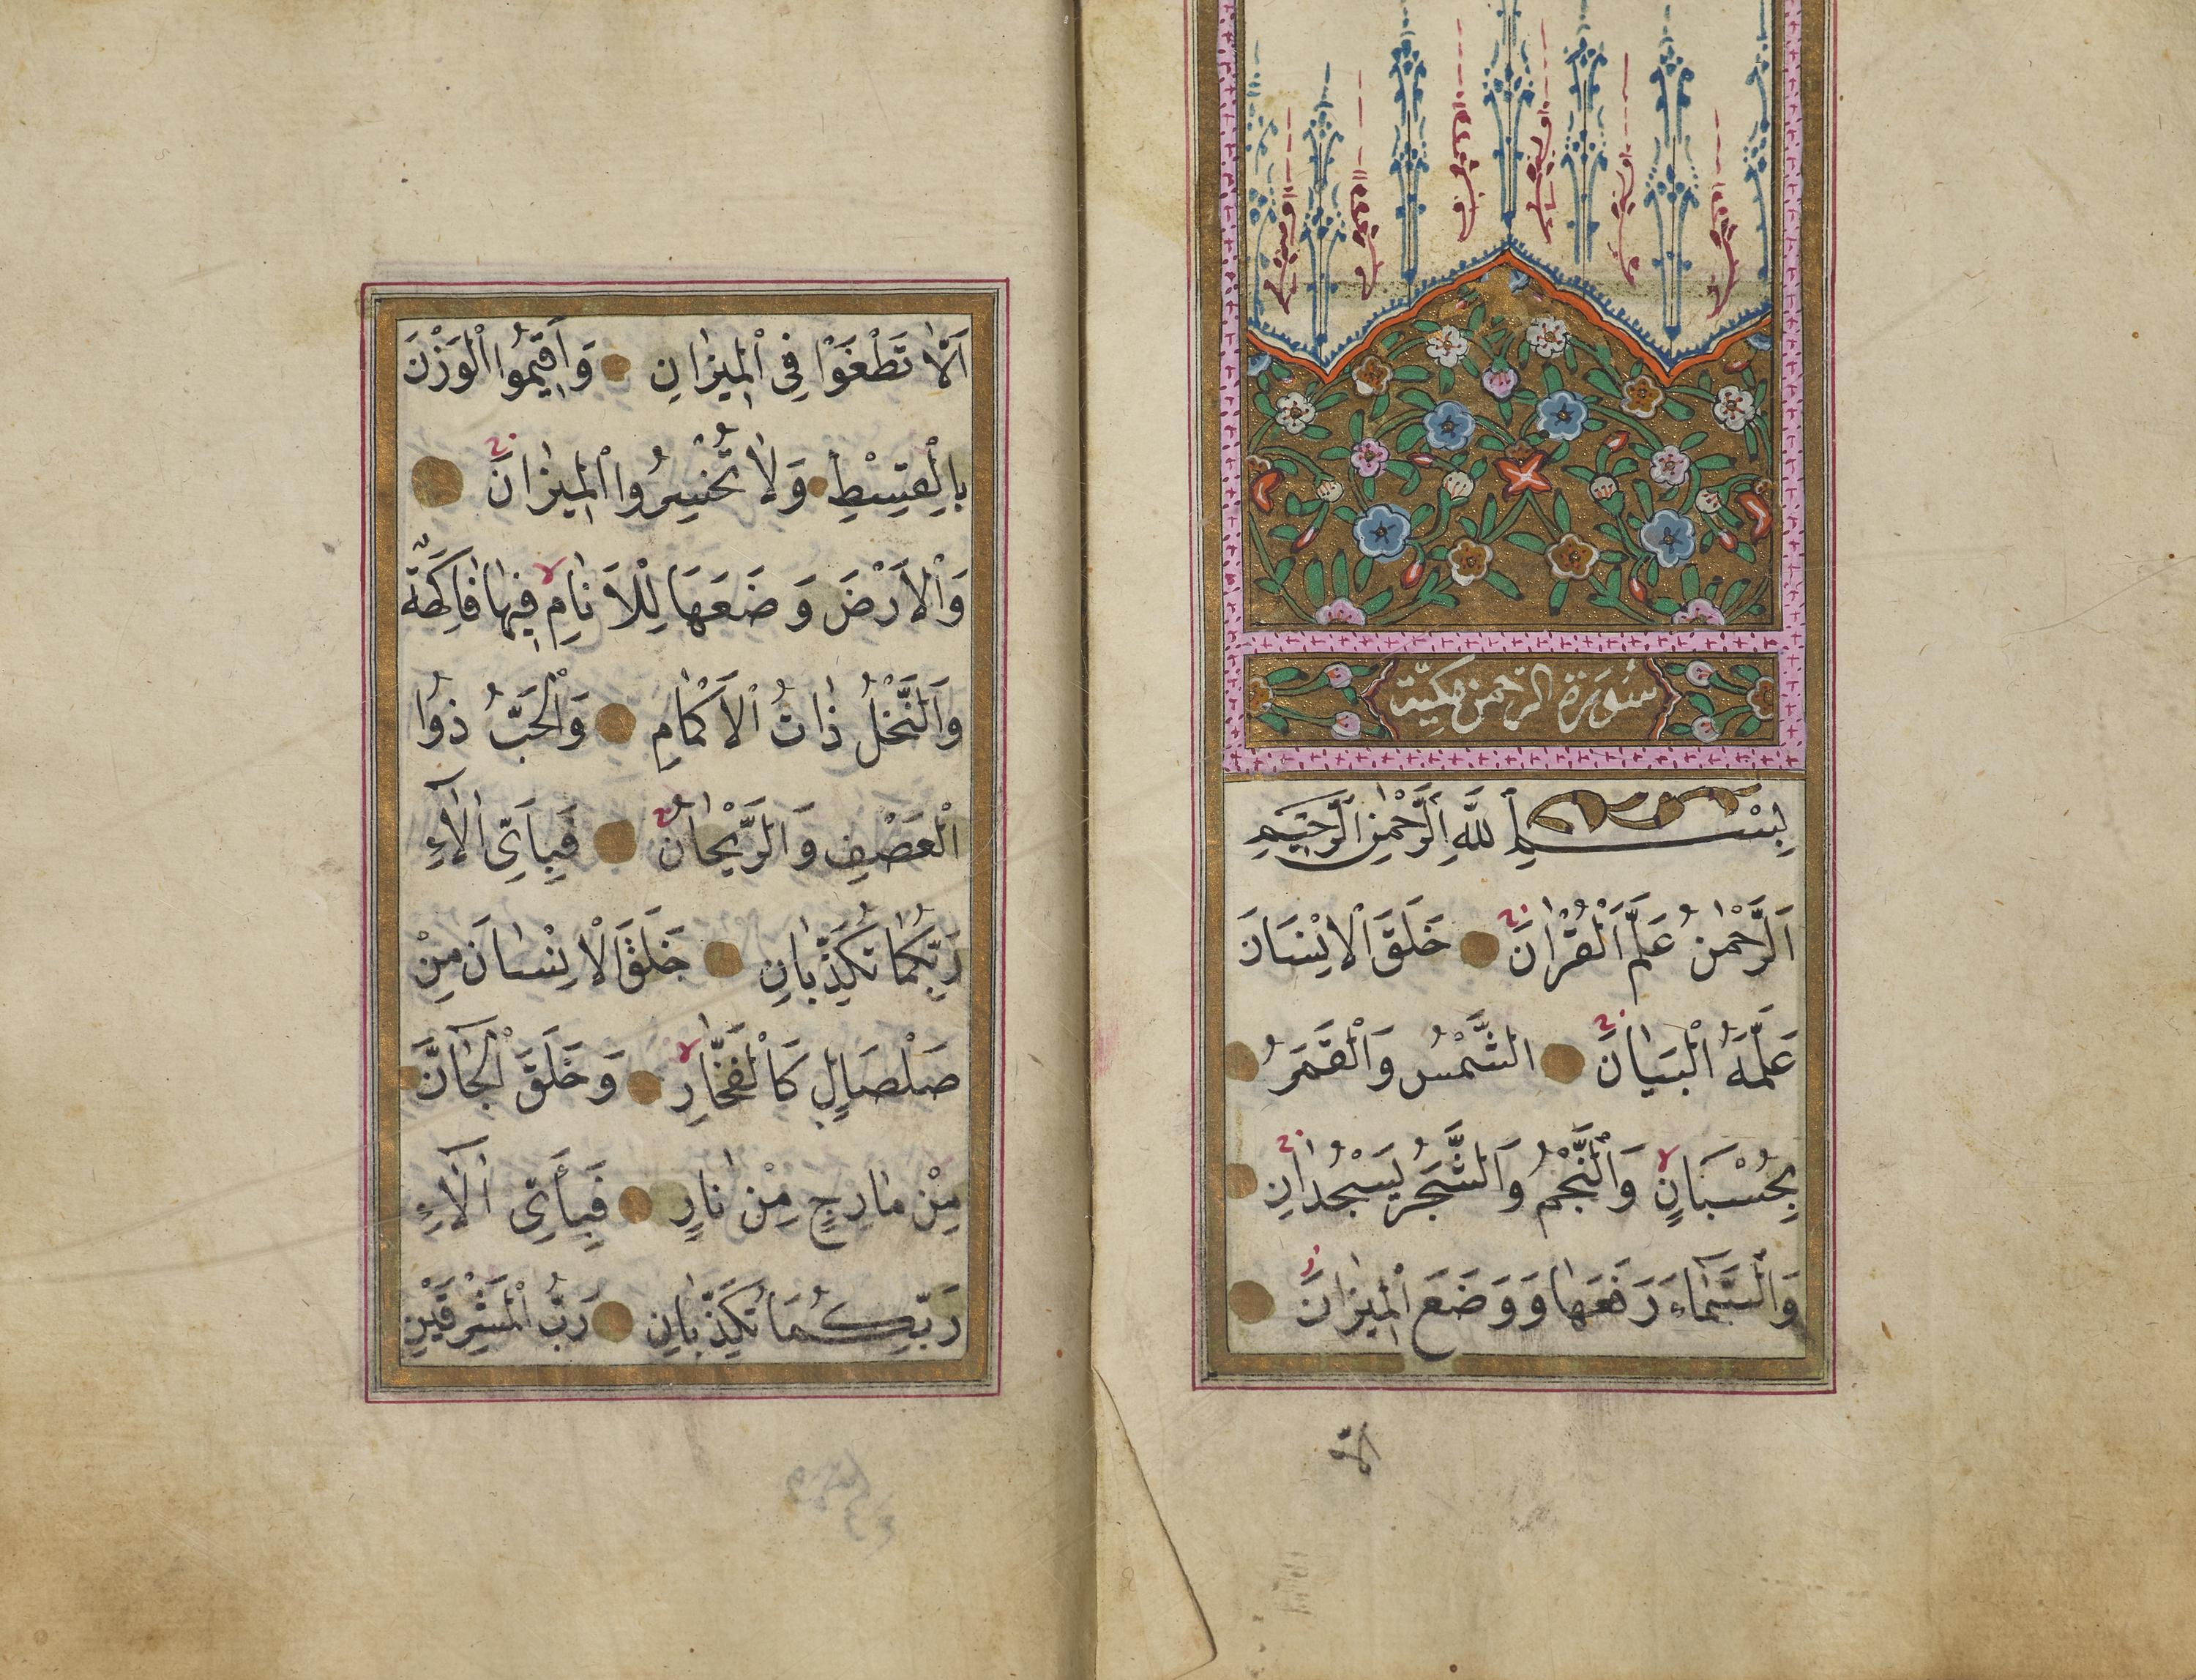 سُورَةُ الرَّحْمٰنِ مَكِّيَّة
بِسْمِ اللّٰهِ الرَّحْمٰنِ الرَّحِيمِ
اَلرَّحْمٰنُ عَلَّمَ الْقُرْاٰنَ خَلَقَ الْاِنْسَانَ
عَلَّمَهُ الْبَيَانَ الشَّمْسُ وَالْقَمَرُ
بِحُسْبَانٍ وَالنَّجْمُ وَالشَّجَرُ يَسْجُدَانِ
وَالسَّمَاءَ رَفَعَهَا وَوَضَعَ الْمِيزَانَ
اَلَّا
اَلَّا تَطْغَوْا فِى الْمِيزَانِ وَاَقِيمُوا الْوَزْنَ
بِالْقِسْطِ وَلَا تُخْسِرُوا الْمِيزَانَ
وَالْاَرْضَ وَضَعَهَا لِلْاَنَامِ فِيهَا فَاكِهَةٌ
وَالنَّخْلُ ذَاتُ الْاَكْمَامِ وَالْحَبُّ ذُوا
الْعَصْفِ وَالرَّيْحَانُ فَبِاَىِّ اٰلَاءِ
رَبِّكُمَا تُكَذِّبَانِ خَلَقَ الْاِنْسَانَ مِنْ
صَلْصَالٍ كَالْفَخَّارِ وَخَلَقَ الْجَانَّ
مِنْ مَارِجٍ مِنْ نَارٍ فَبِأَىِّ اٰلَاءِ
رَبِّكُمَا تُكَذِّبَانِ رَبُّ الْمَشْرِقَيْنِ